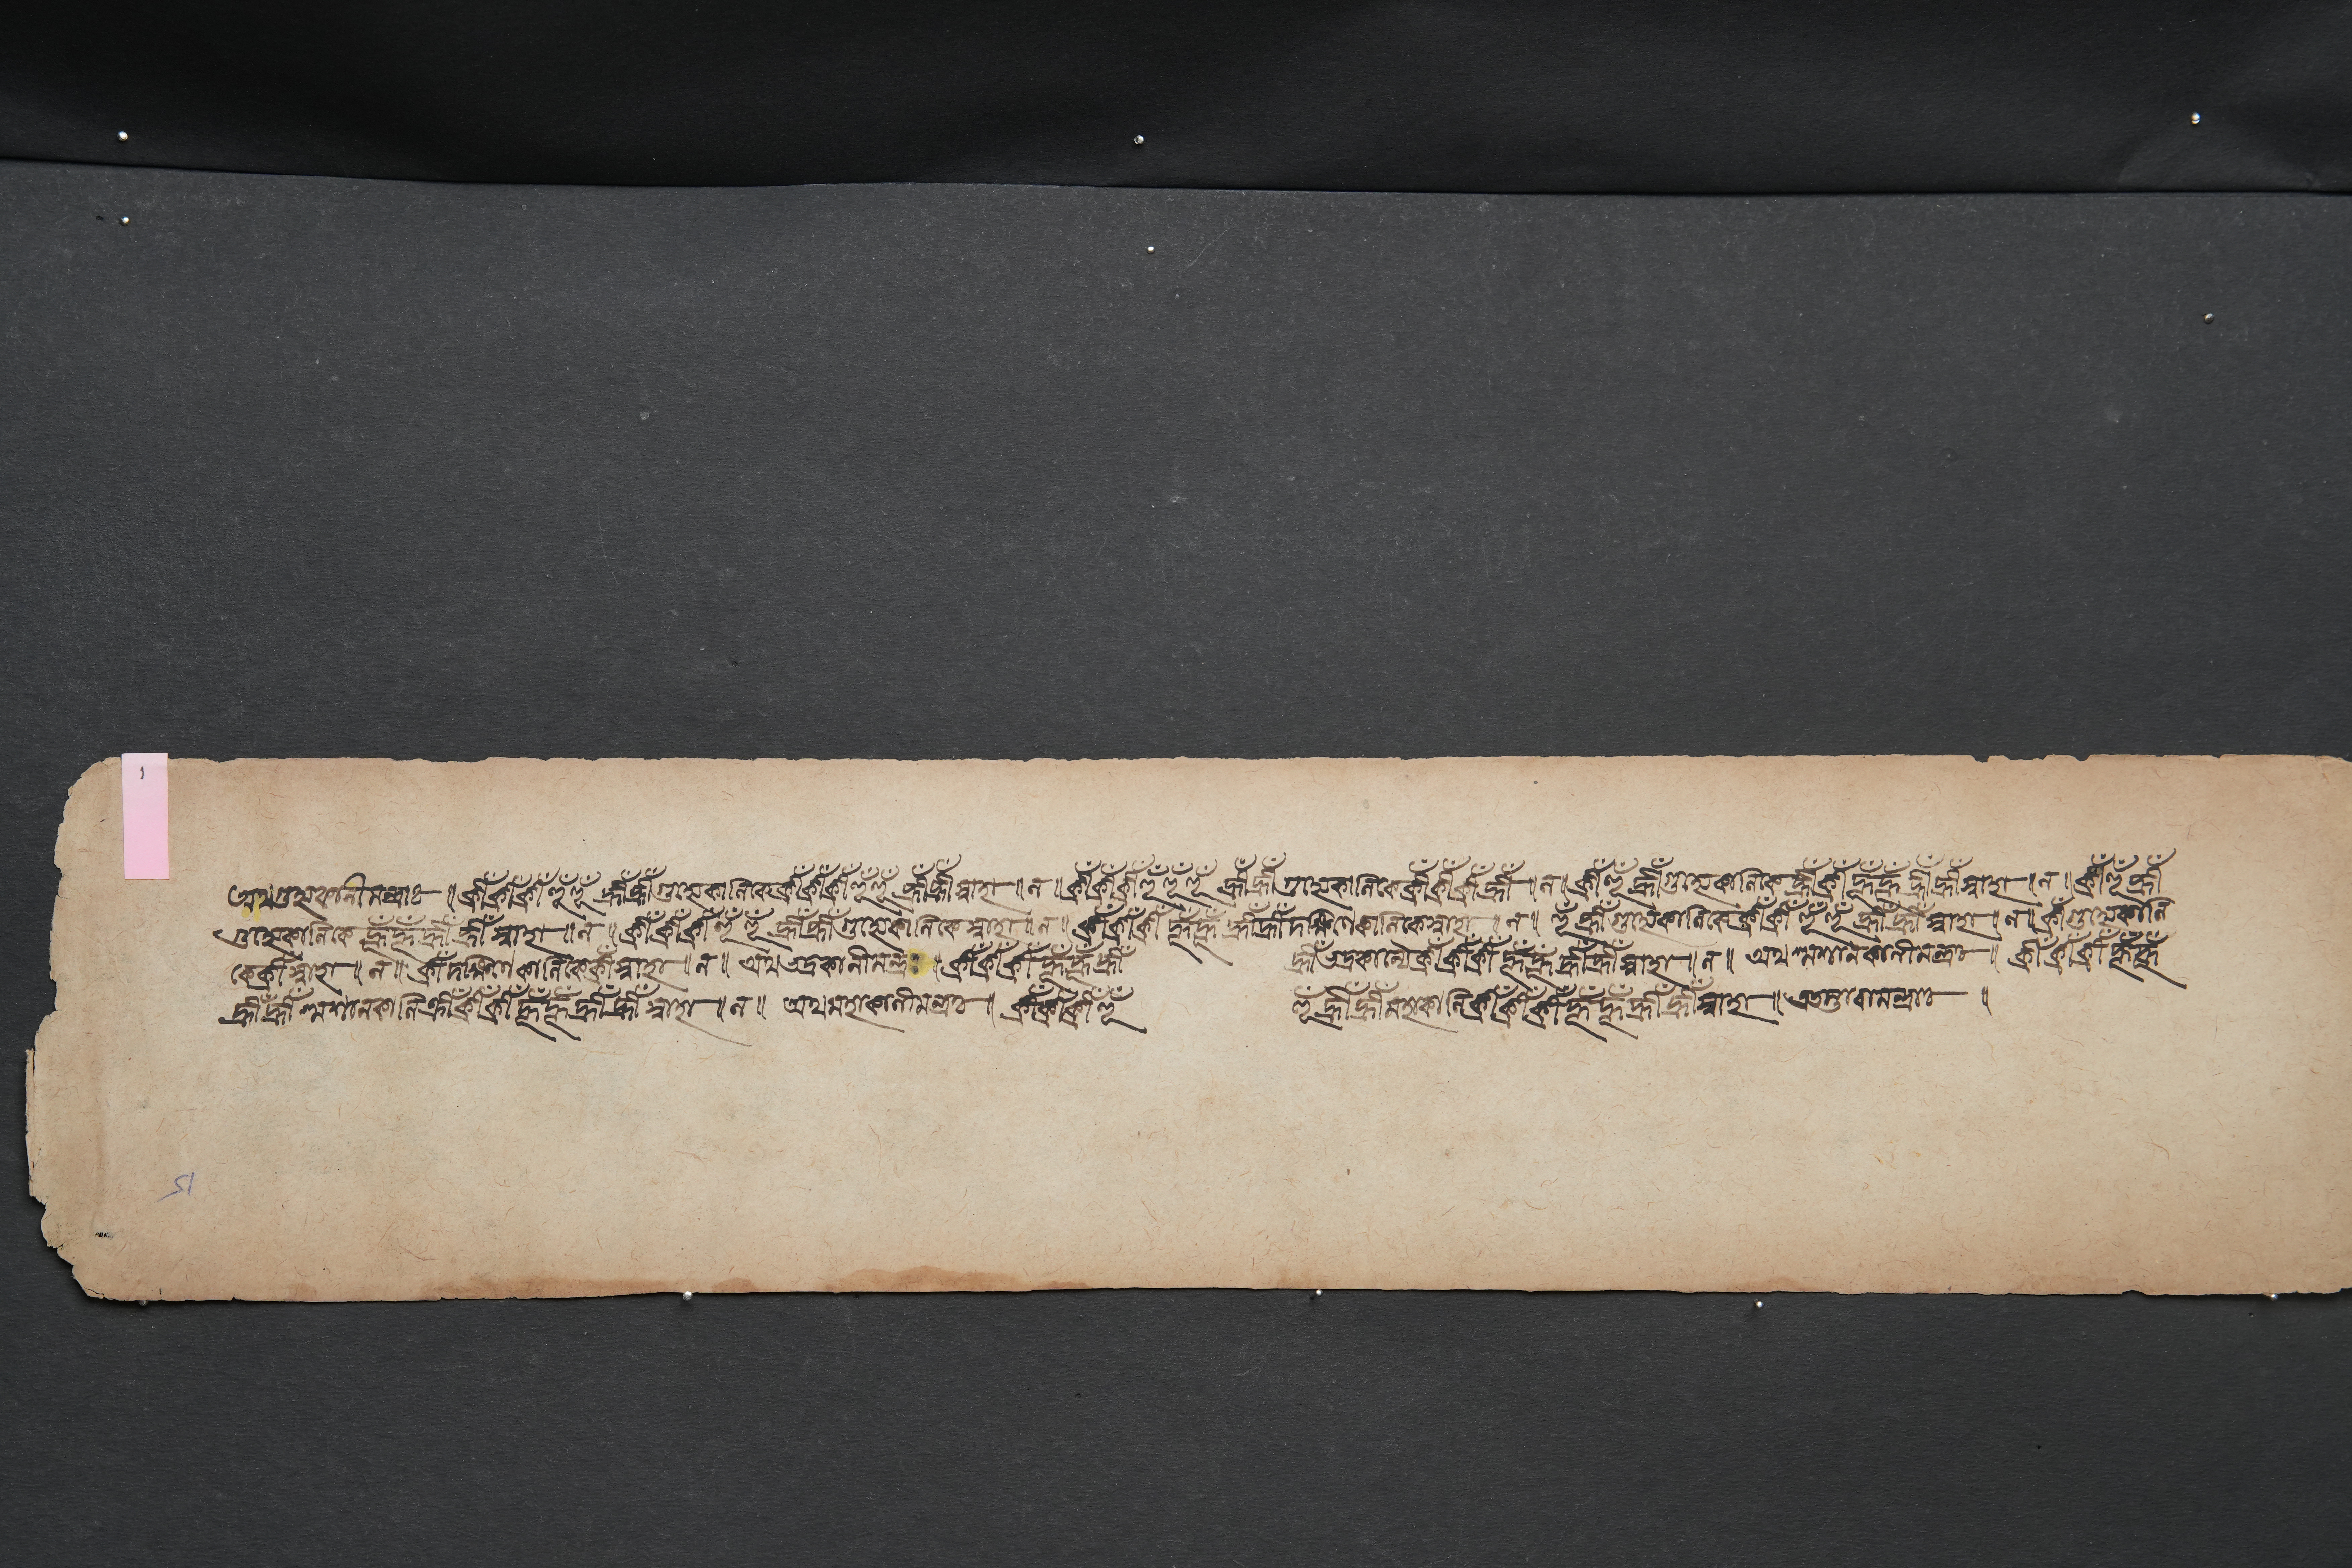 অথগুহ্যকালীমন্ত্রাঃ ॥ ক্রীঁক্রীঁক্রীঁহূঁহূঁ হ্রীঁহ্রীঁগুহ্যেকালিকেক্রীঁক্রীঁক্রীঁহূঁহূঁ হ্রীঁহ্রীঁস্বাহা ॥ ন ॥ ক্রীঁক্রীঁক্রীঁহূঁহূঁহূঁ হ্রীঁহ্রীঁগুহ্যেকালিকেক্রীঁক্রীঁক্রীঁহ্রীঁ ॥ ন ॥ ক্রীঁহূঁহ্রীঁগুহ্যেকালিকে ক্রীঁক্রীঁহূঁহূঁ হ্রীঁহ্রীঁস্বাহা ॥ ন ॥ ক্রীঁহূঁহ্রীঁ
গুহ্যেকালিকে হূঁহূঁহ্রীঁহ্রীঁস্বাহা ॥ ন ॥ ক্রীঁক্রীঁক্রীঁহূঁহূঁ হ্রীঁহ্রীঁগুহ্যেকালিকে স্বাহা ॥ ন ॥ ক্রীঁক্রীঁক্রীঁ হূঁহূঁ হ্রীঁহ্রীঁদক্ষিণেকালিকেস্বাহা ॥ ন ॥ হূঁহ্রীঁগুহ্যেকালিকে ক্রীঁক্রীঁহূঁহূঁ হ্রীঁহ্রীঁস্বাহা ॥ ন ॥ ক্রীঁগুহ্যেকালি
কেক্রীঁস্বাহা ॥ ন ॥ ক্রীঁদক্ষিণেকালিকেক্রীঁস্বাহা ॥ ন ॥ অথভদ্রকালীমন্ত্রঃ ॥ ক্রীঁক্রীঁক্রীঁহূঁহূঁহ্রীঁ হ্রীঁভদ্রকাল্যৈক্রীঁক্রীঁক্রীঁহূঁহূঁ হ্রীঁহ্রীঁস্বাহা ॥ ন ॥ অথশ্মশানকালীমন্ত্রঃ ॥ ক্রীঁক্রীঁক্রীঁহূঁহূঁ
হ্রীঁহ্রীঁ শ্মশানকালিক্রীঁক্রীঁক্রীঁহূঁহূঁহ্রীঁহ্রীঁ স্বাহা ॥ ন ॥ অথমহাকালীমন্ত্রঃ ॥ ক্রীঁক্রীঁক্রীঁহূঁ হূঁহ্রীঁহ্রীঁমহাকালিক্রীঁক্রীঁক্রীঁহূঁহূঁহ্রীঁহ্রীঁস্বাহা ॥ মন্ত্রাঃ ॥